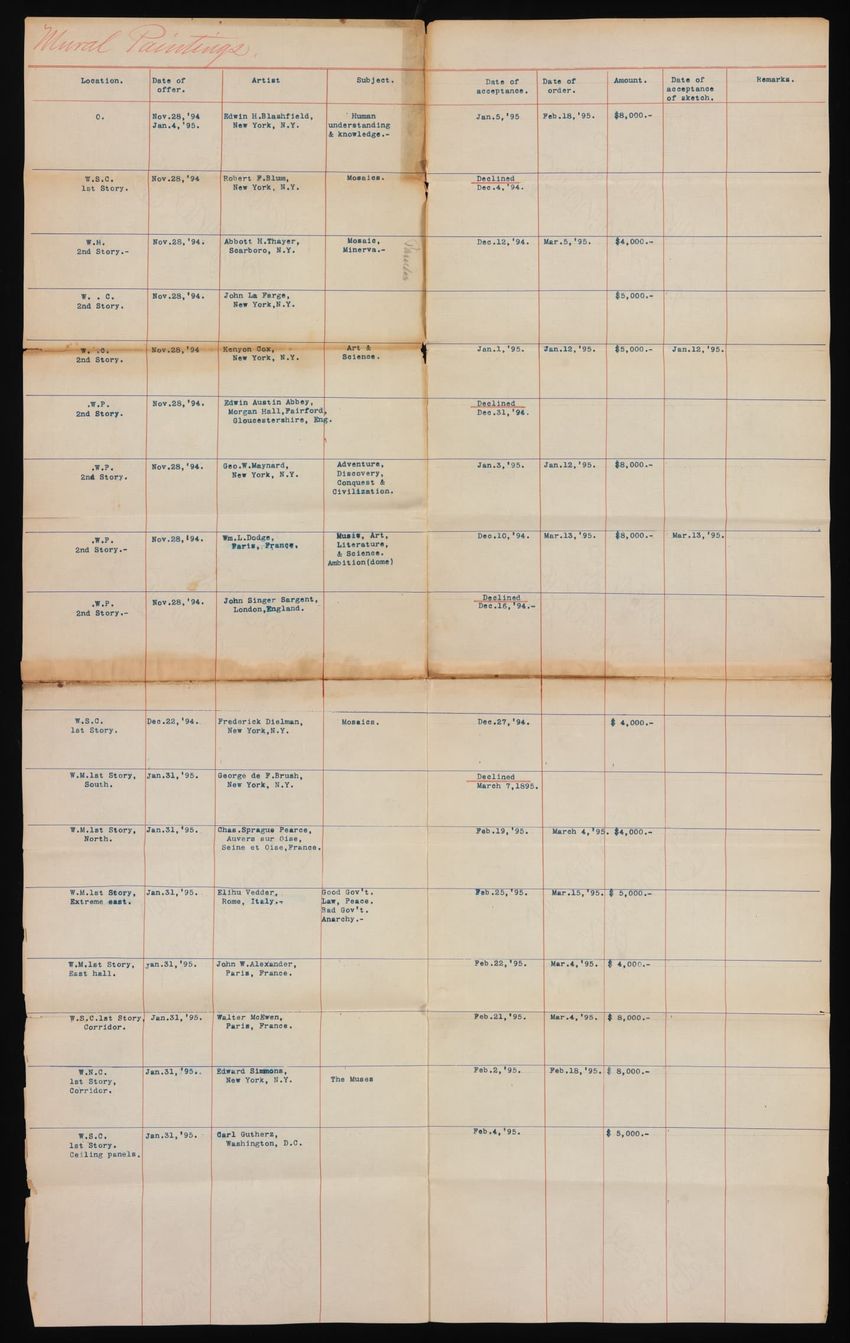 Mural Paintings.
Location. Date of offer. Artist Subject. Date of acceptance. Date of order. Amount. Date of acceptance of sketch. Remarks.
C. Nov.28,'94 Edwin H.Blashfield, Human Jan.5,'95 Feb.18,'95. $8,000.-
Jan.4,'95. New York, N.Y. understanding
& knowledge.-
W.S.C. Nov.28,'94 Robert F.Blum, Mosaics. Declined
1st Story. New York, N.Y. Dec.4,'94.
W.H. Nov.28,'94. Abbott H.Thayer, Mosaic, Dec.12,'94. Mar.5,'95. $4,000.-
2nd Story.- Scarboro, N.Y. Minerva.-
W. . C. Nov.28,'94. John La Farge, $5,000.-
2nd Story. New York,N.Y.
W. .C. Nov.28,'94 Kenyon Cox, Art & Jan.1,'95. Jan.12,'95. $5,000.- Jan.12,'95.
2nd Story. New York, N.Y. Science.
.W.P. Nov.28,'94. Edwin Austin Abbey, Declined
2nd Story. Morgan Hall,Fairford, Dec.31,'94.
Gloucestershire, Eng.
.W.P. Nov.28,'94. Geo.W.Maynard, Adventure, Jan.3,'95. Jan.12,'95. $8,000.-
2nd Story. New York, N.Y. Discovery,
Conquest &
Civilization.
.W.P. Nov.28,'94. Wm.L.Dodge, Music, Art, Dec.10,'94. Mar.13,'95. $8,000.- Mar.13,'95.
2nd Story.- Paris, France. Literature,
& Science.
Ambition(dome)
.W.P. Nov.28,'94. John Singer Sargent, Declined
2nd Story.- London,England. Dec.16,'94.-
W.S.C. Dec.22,'94. Frederick Dielman, Mosaics. Dec.27,'94. $ 4,000.-
1st Story. New York,N.Y.
W.M.1st Story, Jan.31,'95. George de F.Brush, Declined
South. New York, N.Y. March 7,1895.
W.M.1st Story, Jan.31,'95. Chas.Sprague Pearce, Feb.19,'95. March 4,'95. $4,000.-
North. Auvers sur Oise,
Seine et Oise,France.
W.M.1st Story, Jan.31,'95. Elihu Vedder, Good Gov't. Feb.25,'95. Mar.15,'95. $ 5,000.-
Extreme east. Rome, Italy.- Law, Peace.
Bad Gov't.
Anarchy.-
W.M.1st Story, Jan.31,'95. John W.Alexander, Feb.22,'95. Mar.4,'95. $ 4,000.-
East hall. Paris, France.
W.S.C.1st Story, Jan.31,'95. Walter McEwen, Feb.21,'95. Mar.4,'95. $ 8,000.-
Corridor. Paris, France.
W.N.C. Jan.31,'95. Edward Simmons, Feb.2,'95. Feb.18,'95. $ 8,000.-
1st Story, New York, N.Y. The Muses
Corridor.
W.S.C. Jan.31,'95. Carl Gutherz, Feb.4,'95. $ 5,000.-
1st Story. Washington, D.C.
Ceiling panels.